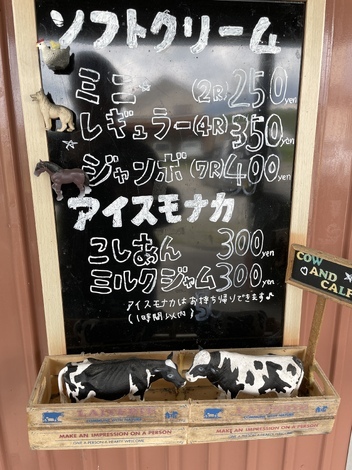 ソフトクリーム
ミニ (2R) 250yen
レギュラー(4R) 350yen
ジャンボ(7R) 400yen
アイスモナカ
こしあん 300yen
ミルクジャム 300yen
アイスモナカはお持ち帰りできます♪
(1時間以内)
COW
AND CALF
MAKE AN IMPRESSION ON A PERSON
GIVE A PERSON A HEARTY WELCOME
MAKE AN IMPRESSION ON A PERSON